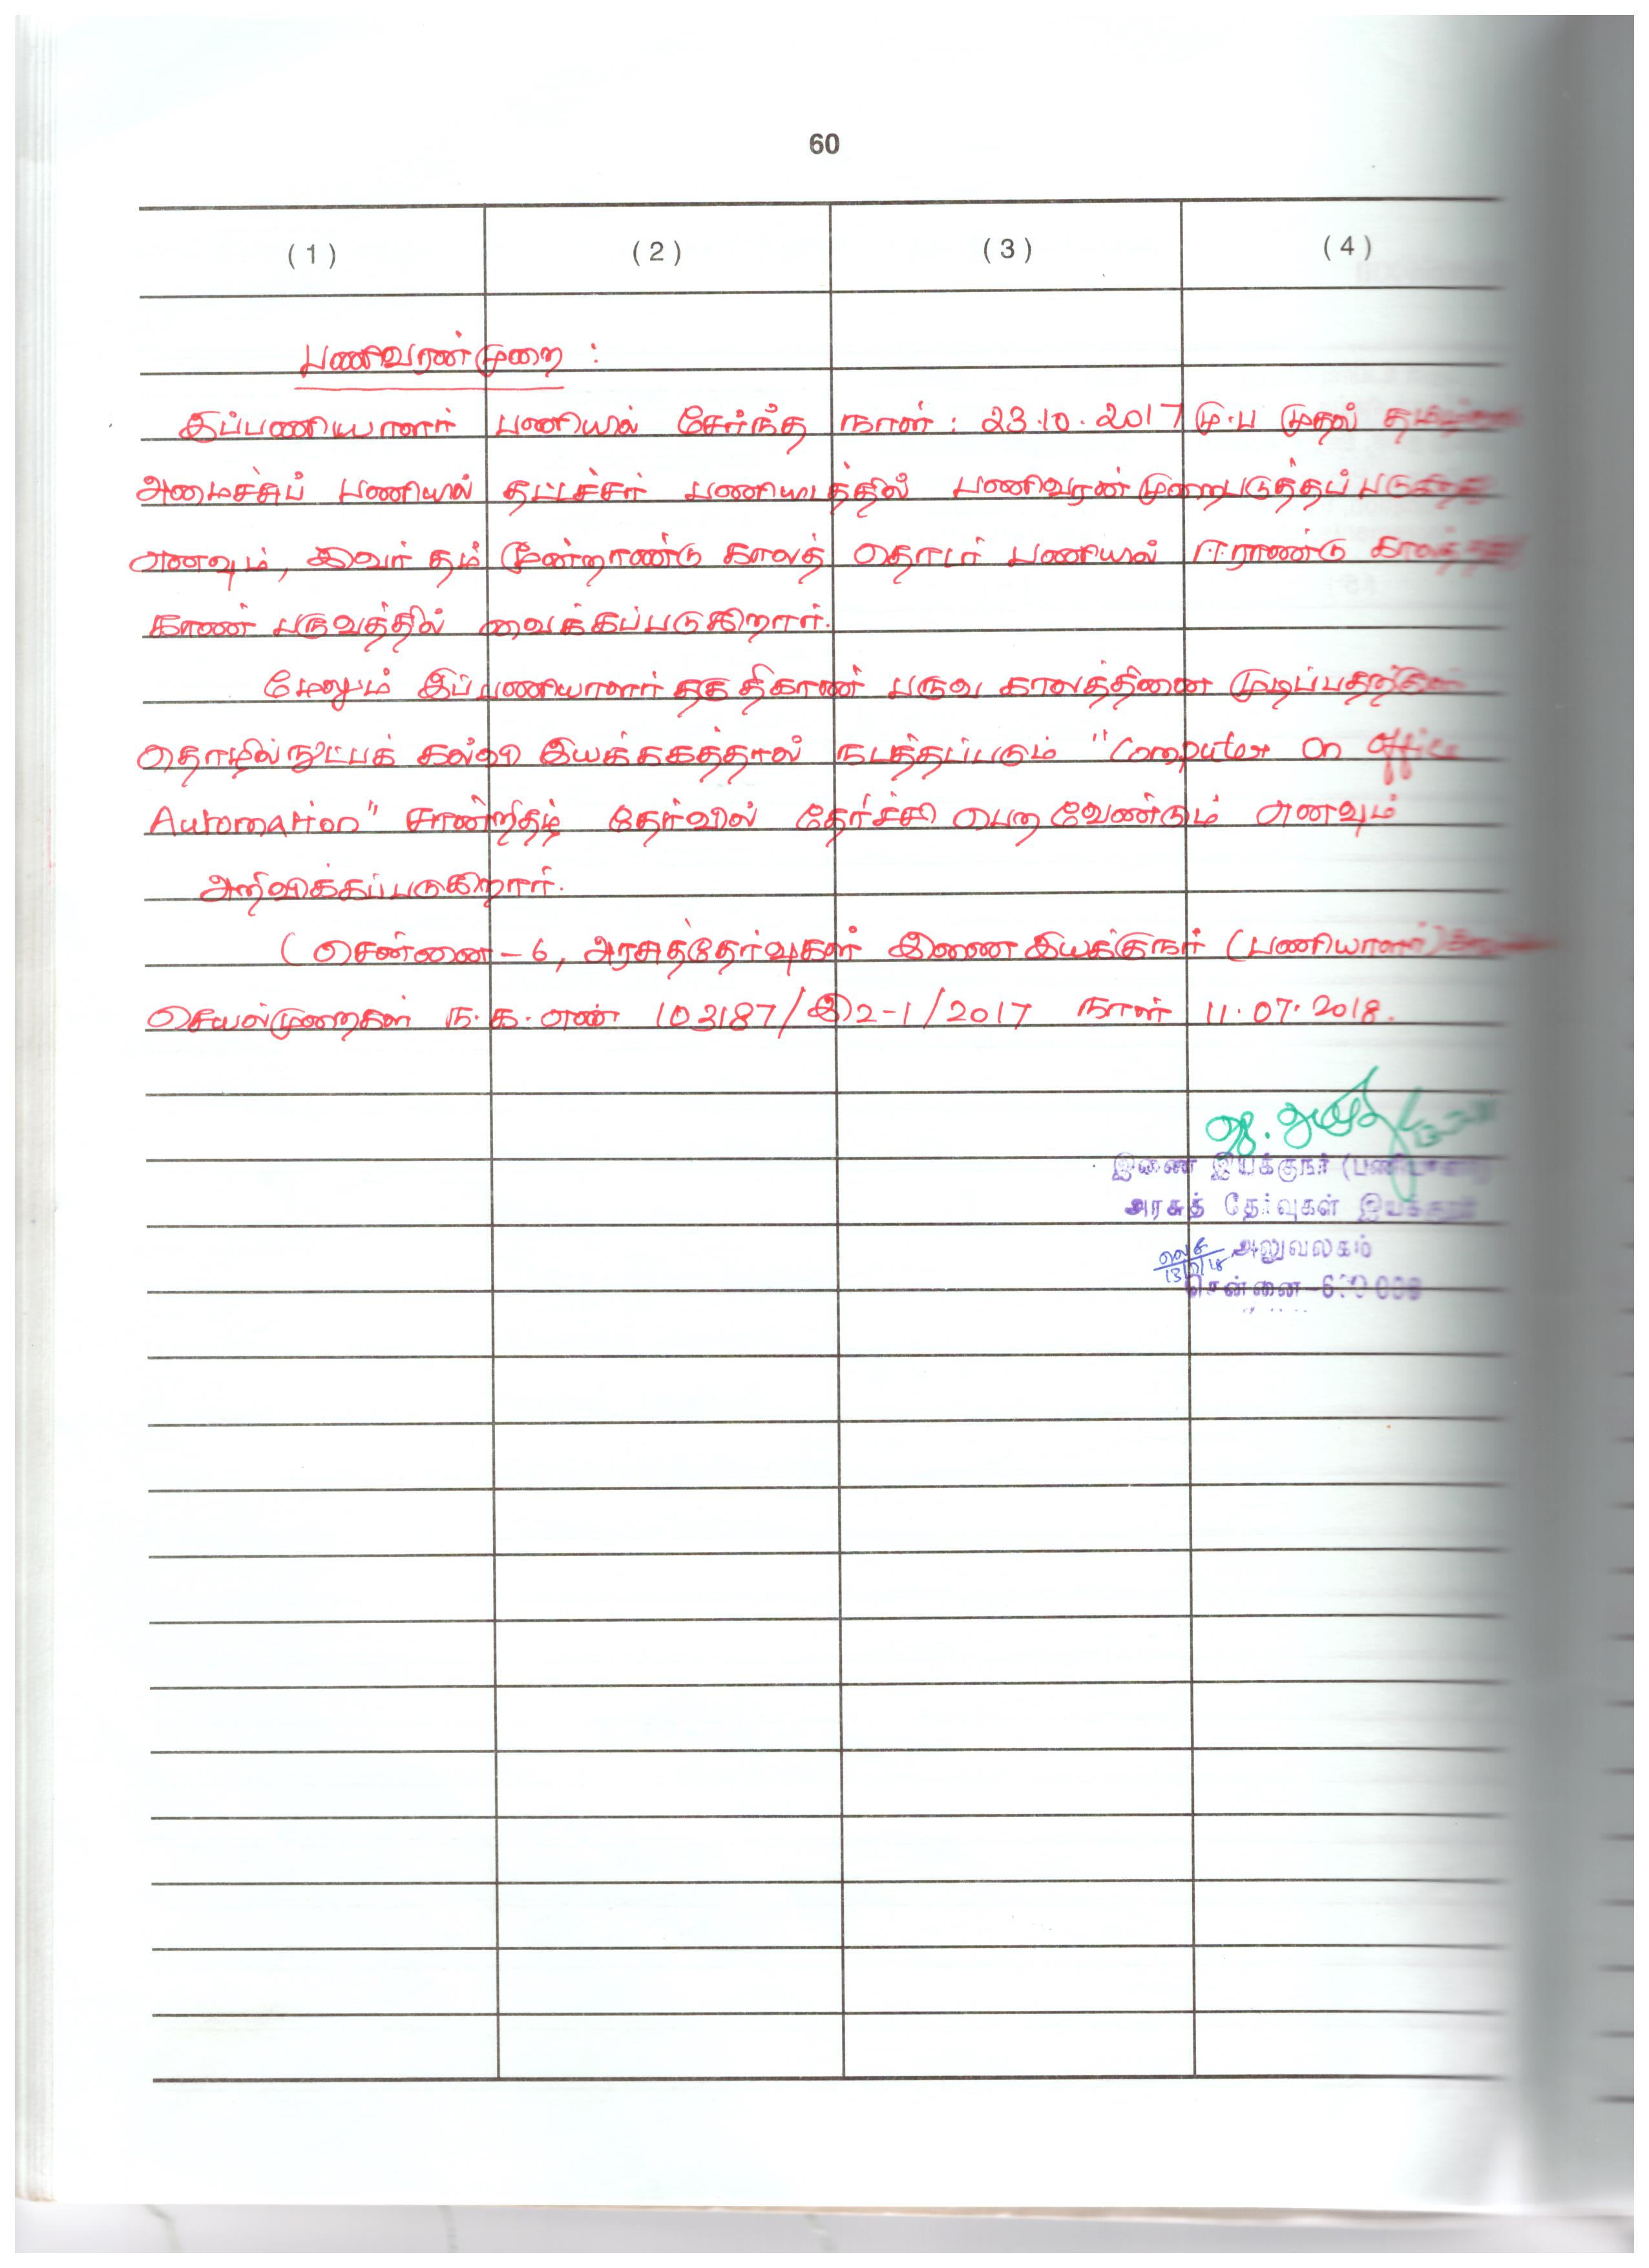 60
(1) (2) (3) (4)
பணிவரன்முறை :
இப்பணியாளர் பணியில் சேர்ந்த நாள் : 23.10.2017 மு.ப முதல்
அமைச்சுப் பணியில் தட்டச்சர் பணியிடத்தில் பணிவரன்முறைபடுத்தப்படுகிறது
எனவும், இவர் தம் மூன்றாண்டு காலத் தொடர் பணியில் ஈராண்டு
காண் பருவத்தில் வைக்கப்படுகிறார்.
மேலும் இப்பணியாளர் தகுதிகாண் பருவ காலத்தினை முடிப்பதற்குள்
தொழில்நுட்பக் கல்வி இயக்ககத்தால் நடத்தப்படும் "Computer on Office
Automation" சான்றிதழ் தேர்வில் தேர்ச்சி பெற வேண்டும் எனவும்
அறிவிக்கப்படுகிறார்.
(சென்னை-6, அரசுத்தேர்வுகள் இணை இயக்குநர் (பணியாளர்)
செயல்முறைகள் ந.க.எண் 103187/இ2-1/2017 நாள் 11.07.2018.
இணை இயக்குநர் (பணியாளர்)
அரசுத் தேர்வுகள் இயக்குநர்
அலுவலகம்
சென்னை-600 006